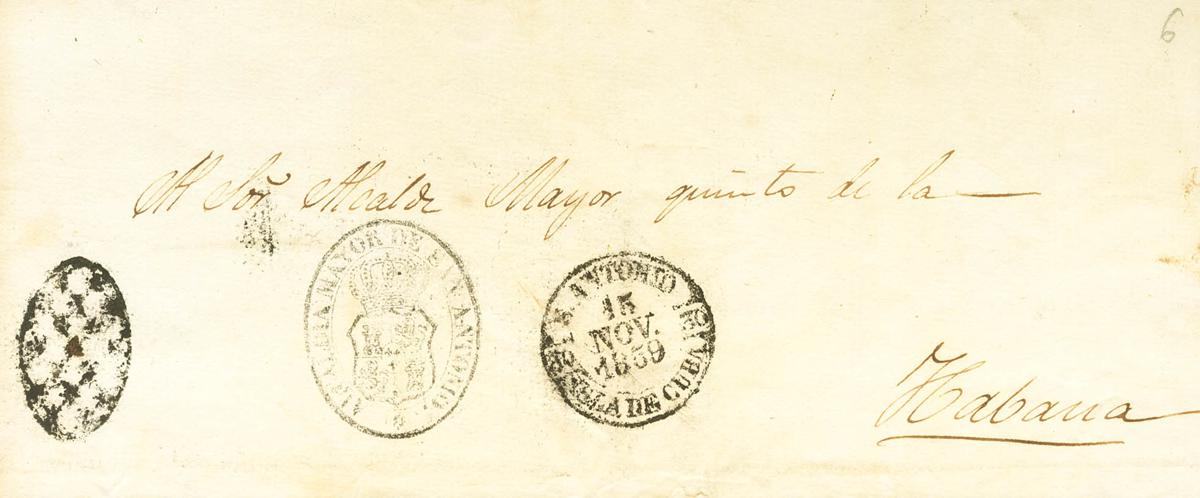 6
Al Sor Alcalde Mayor quinto de la
ALCALDIA MAYOR DE SAN ANTONIO.
S. ANTONIO
15
NOV.
1859
ISLA DE CUBA
Habana